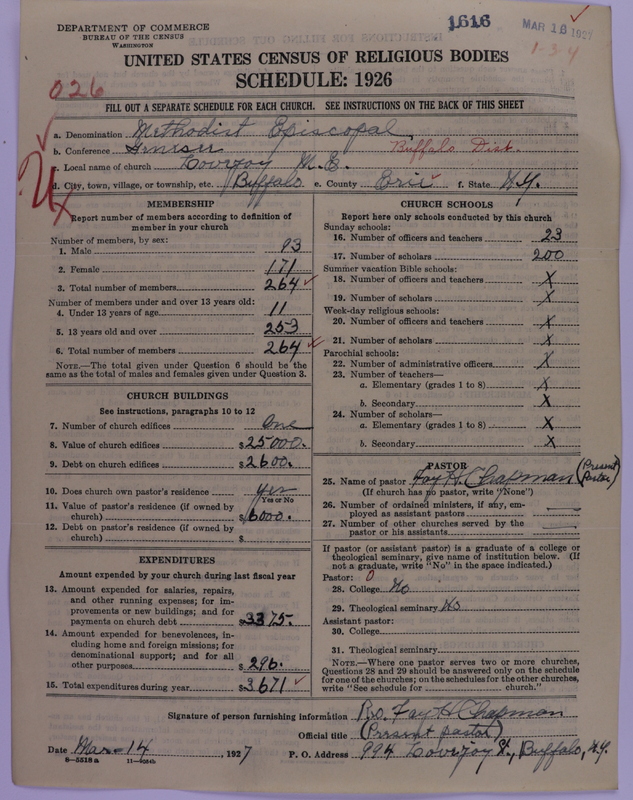 DEPARTMENT OF COMMERCE
BUREAU OF THE CENSUS
WASHINGTON
1616
MAR 16 1927
1-3-4
UNITED STATES CENSUS OF RELIGIOUS BODIES
SCHEDULE: 1926
026
FILL OUT A SEPARATE SCHEDULE FOR EACH CHURCH. SEE INSTRUCTIONS ON THE BACK OF THIS SHEET
a. Denomination Methodist Episcopal
b. Conference Genesee Buffalo Dist.
c. Local name of church Lovejoy M.E.
d. City, town, village, or township, etc. Buffalo e. County Erie f. State N.Y.
MEMBERSHIP
Report number of members according to definition of
member in your church
Number of members, by sex:
1. Male 93
2. Female 171
3. Total number of members 264
Number of members under and over 13 years old:
4. Under 13 years of age 11
5. 13 years old and over 253
6. Total number of members 264
NOTE.—The total given under Question 6 should be
the same as the total of males and females given under Question 3.
CHURCH BUILDINGS
See instructions, paragraphs 10 to 12
7. Number of church edifices One
8. Value of church edifices $25000.
9. Debt on church edifices $2600.
10. Does church own pastor's residence yes
Yes or No
11. Value of pastor's residence (if owned by
church) $6000.
12. Debt on pastor's residence (if owned by
church) $
EXPENDITURES
Amount expended by your church during last fiscal year
13. Amount expended for salaries, repairs,
and other running expenses; for im-
provements or new buildings; and for
payments on church debt $3375.
14. Amount expended for benevolences, in-
cluding home and foreign missions; for
denominational support; and for all
other purposes $296.
15. Total expenditures during year $3671
CHURCH SCHOOLS
Report here only schools conducted by this church
Sunday schools:
16. Number of officers and teachers 23
17. Number of scholars 200
Summer vacation Bible schools:
18. Number of officers and teachers X
19. Number of scholars X
Week-day religious schools:
20. Number of officers and teachers X
21. Number of scholars X
Parochial schools:
22. Number of administrative officers X
23. Number of teachers—
a. Elementary (grades 1 to 8) X
b. Secondary X
24. Number of scholars—
a. Elementary (grades 1 to 8) X
b. Secondary X
PASTOR
25. Name of pastor Fay H. Chapman (Present Pastor)
(If church has no pastor, write "None")
26. Number of ordained ministers, if any, em-
ployed as assistant pastors
27. Number of other churches served by the
pastor or his assistants
If pastor (or assistant pastor) is a graduate of a college or
theological seminary, give name of institution below. (If
not a graduate, write "No" in the space indicated.)
Pastor: 0
28. College No
29. Theological seminary No
Assistant pastor:
30. College
31. Theological seminary
NOTE.—Where one pastor serves two or more churches,
Questions 28 and 29 should be answered only on the schedule
for one of the churches; on the schedules for the other churches,
write "See schedule for church."
Signature of person furnishing information Fay H Chapman
Official title (Present pastor)
Date Mar-14, 1927 P. O. Address 994 Lovejoy St., Buffalo, N.Y.
8-5318 a